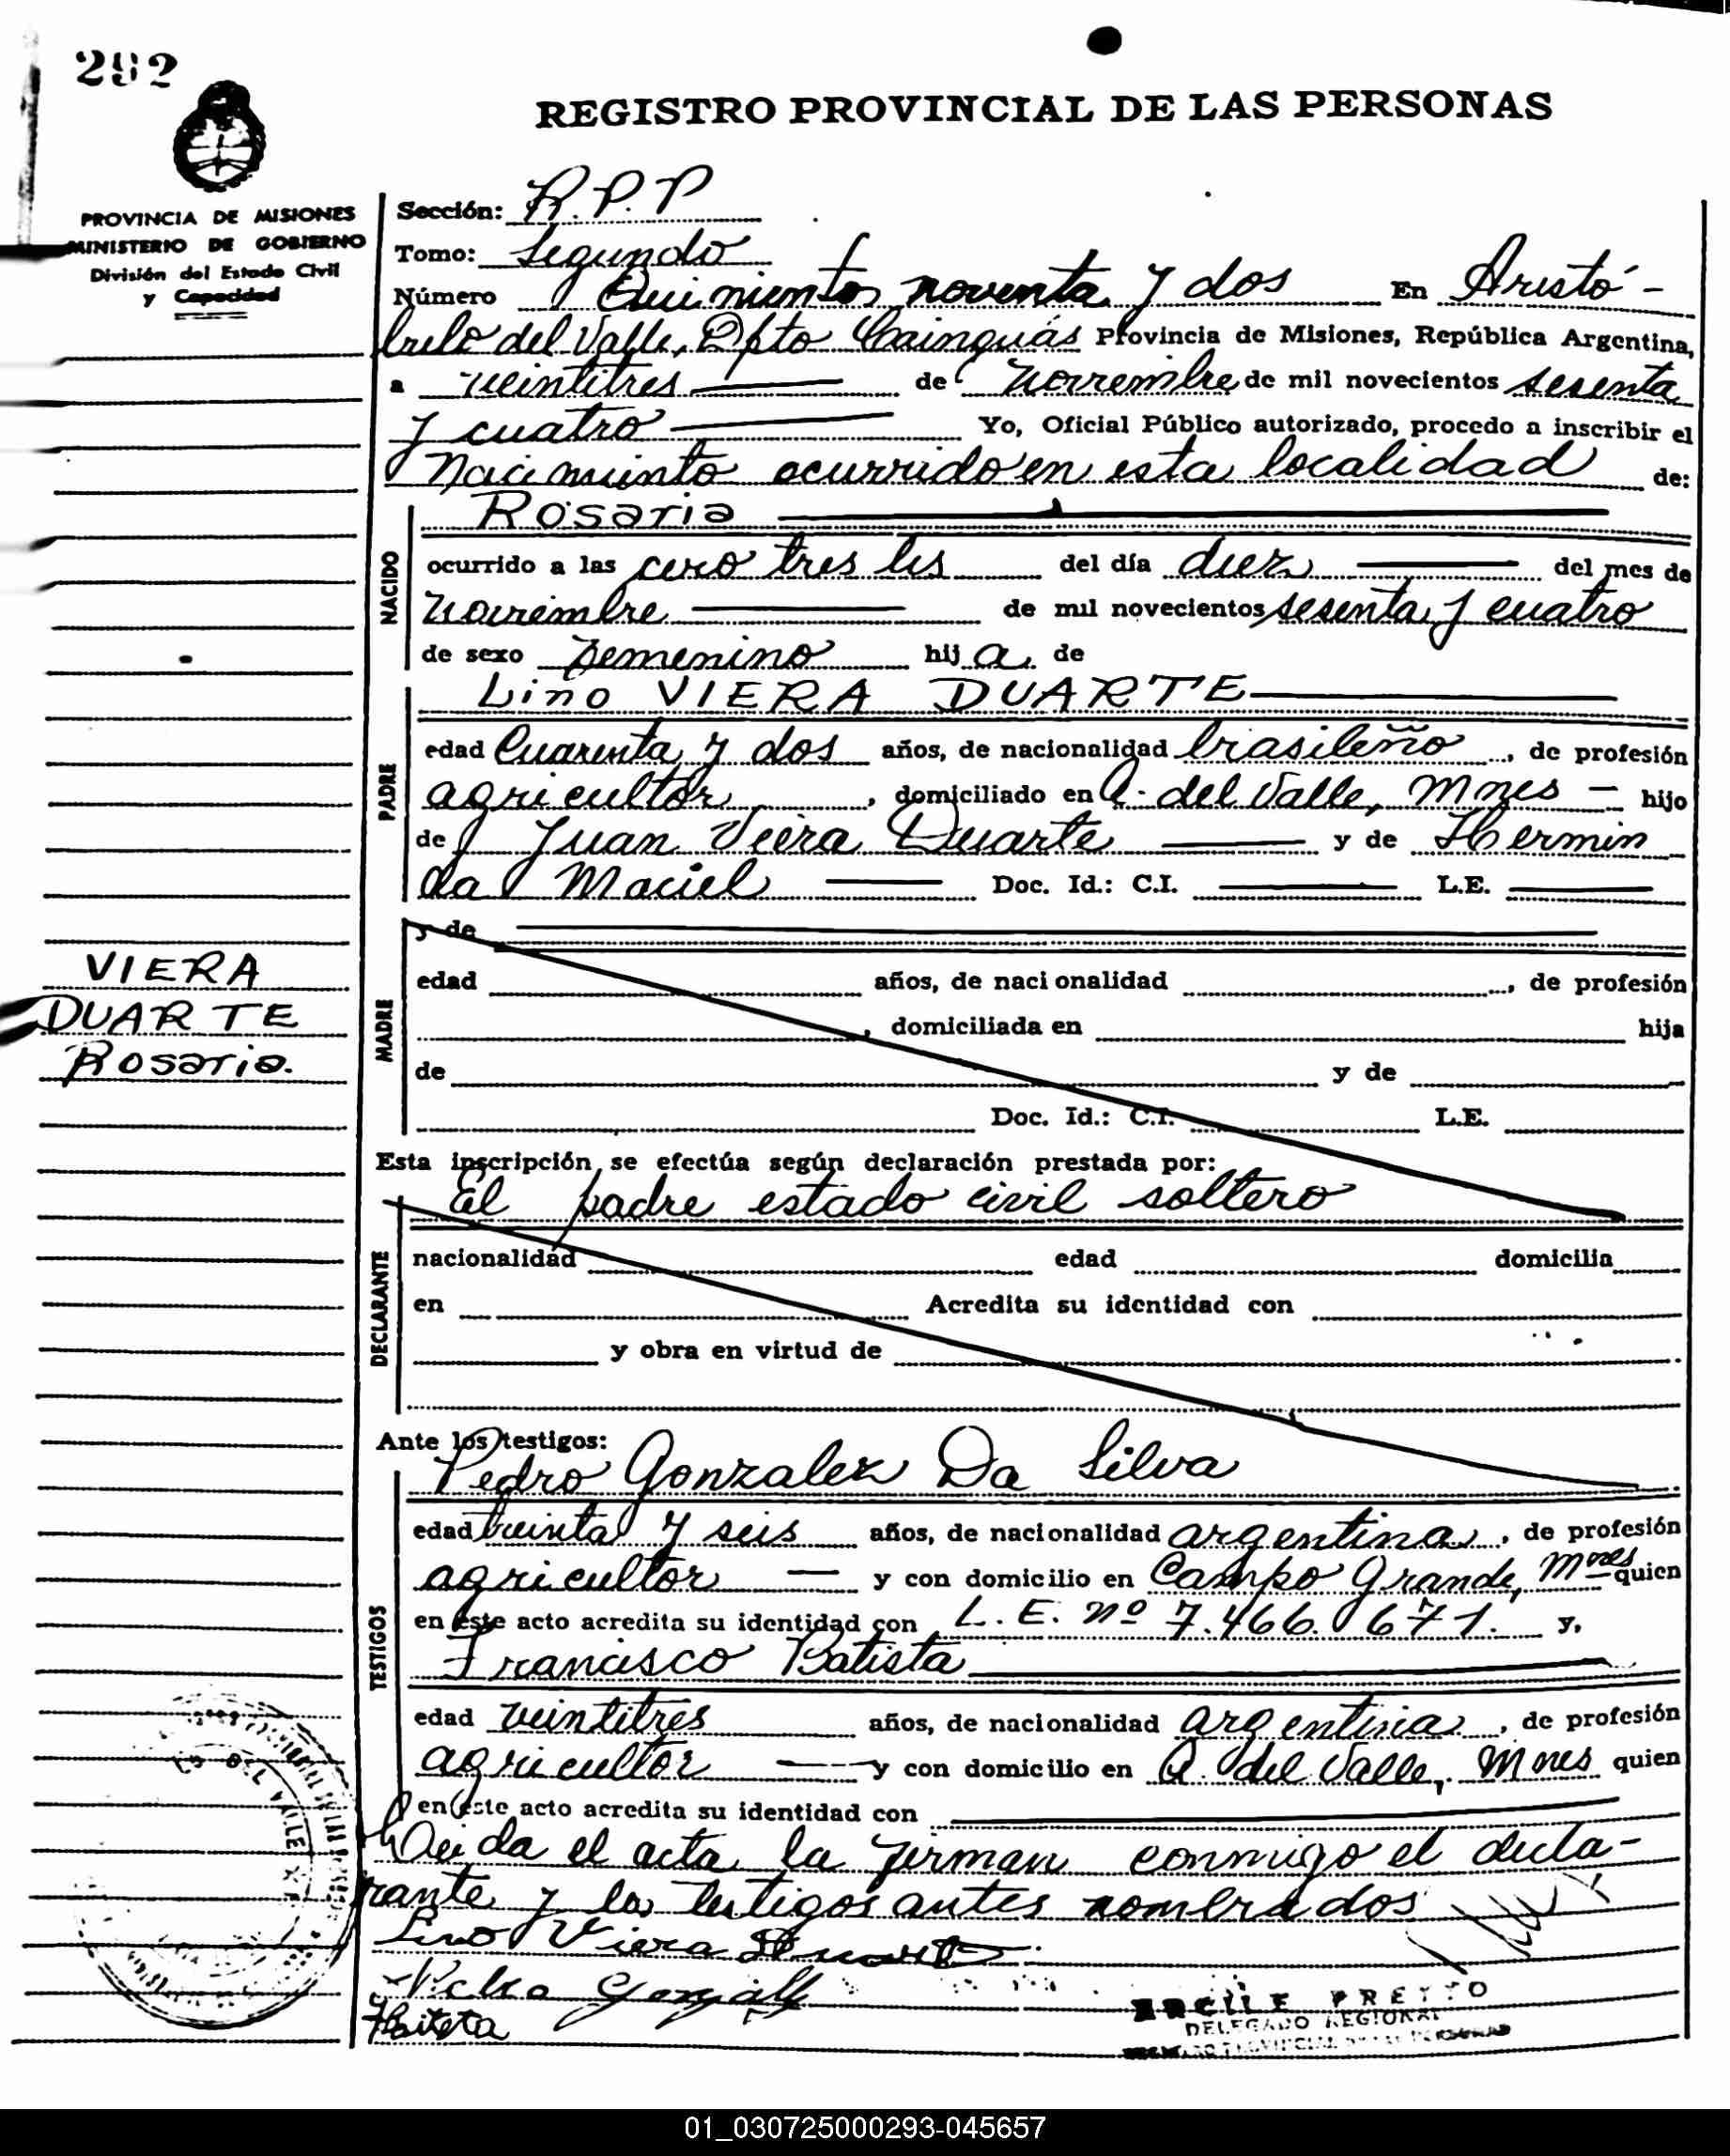 292
REGISTRO PROVINCIAL DE LAS PERSONAS
PROVINCIA DE MISIONES
MINISTERIO DE GOBIERNO
División del Estado Civil
y Capacidad
Sección: R.P.P
Tomo: Segundo
Número Quinientos noventa y dos En Aristó-
bulo del Valle, Dpto Cainguás Provincia de Misiones, República Argentina,
a veintitres de Noviembre de mil novecientos sesenta
y cuatro Yo, Oficial Público autorizado, procedo a inscribir el
Nacimiento ocurrido en esta localidad de:
NACIDO
Rosaria
ocurrido a las cero tres hs del día diez del mes de
Noviembre de mil novecientos sesenta y cuatro
de sexo Femenino hij a de
PADRE
Lino VIERA DUARTE
edad Cuarenta y dos años, de nacionalidad brasileño, de profesión
agricultor, domiciliado en A. del Valle, Mnes — hijo
de Juan Viera Duarte y de Hermin
da Maciel Doc. Id.: C.I. L.E.
VIERA
DUARTE
Rosaria.
MADRE
y de
edad años, de nacionalidad , de profesión
, domiciliada en hija
de y de
Doc. Id.: C.I. L.E.
Esta inscripción se efectúa según declaración prestada por:
El padre estado civil soltero
DECLARANTE
nacionalidad edad domicilia
en Acredita su identidad con
y obra en virtud de
Ante los testigos:
TESTIGOS
Pedro Gonzalez Da Silva
edad treinta y seis años, de nacionalidad argentina, de profesión
agricultor — y con domicilio en Campo Grande, Mnes quien
en este acto acredita su identidad con L.E. nº 7.466.671. y,
Francisco Batista
edad veintitres años, de nacionalidad argentina, de profesión
agricultor — y con domicilio en A. del Valle, Mnes quien
en este acto acredita su identidad con
Leida el acta la firman conmigo el decla-
rante y los testigos antes nombrados
Lino Viera Duarte
Pedro Gonzalez
Batista
PREITO
DELEGADO REGIONAL
DEL VALLE
01_030725000293-045657